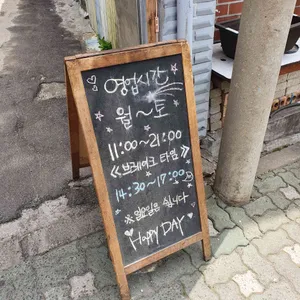 영업시간
월~토
11:00~21:00
《브레이크 타임》
14:30~17:00
※일요일은 쉽니다
Happy DAY